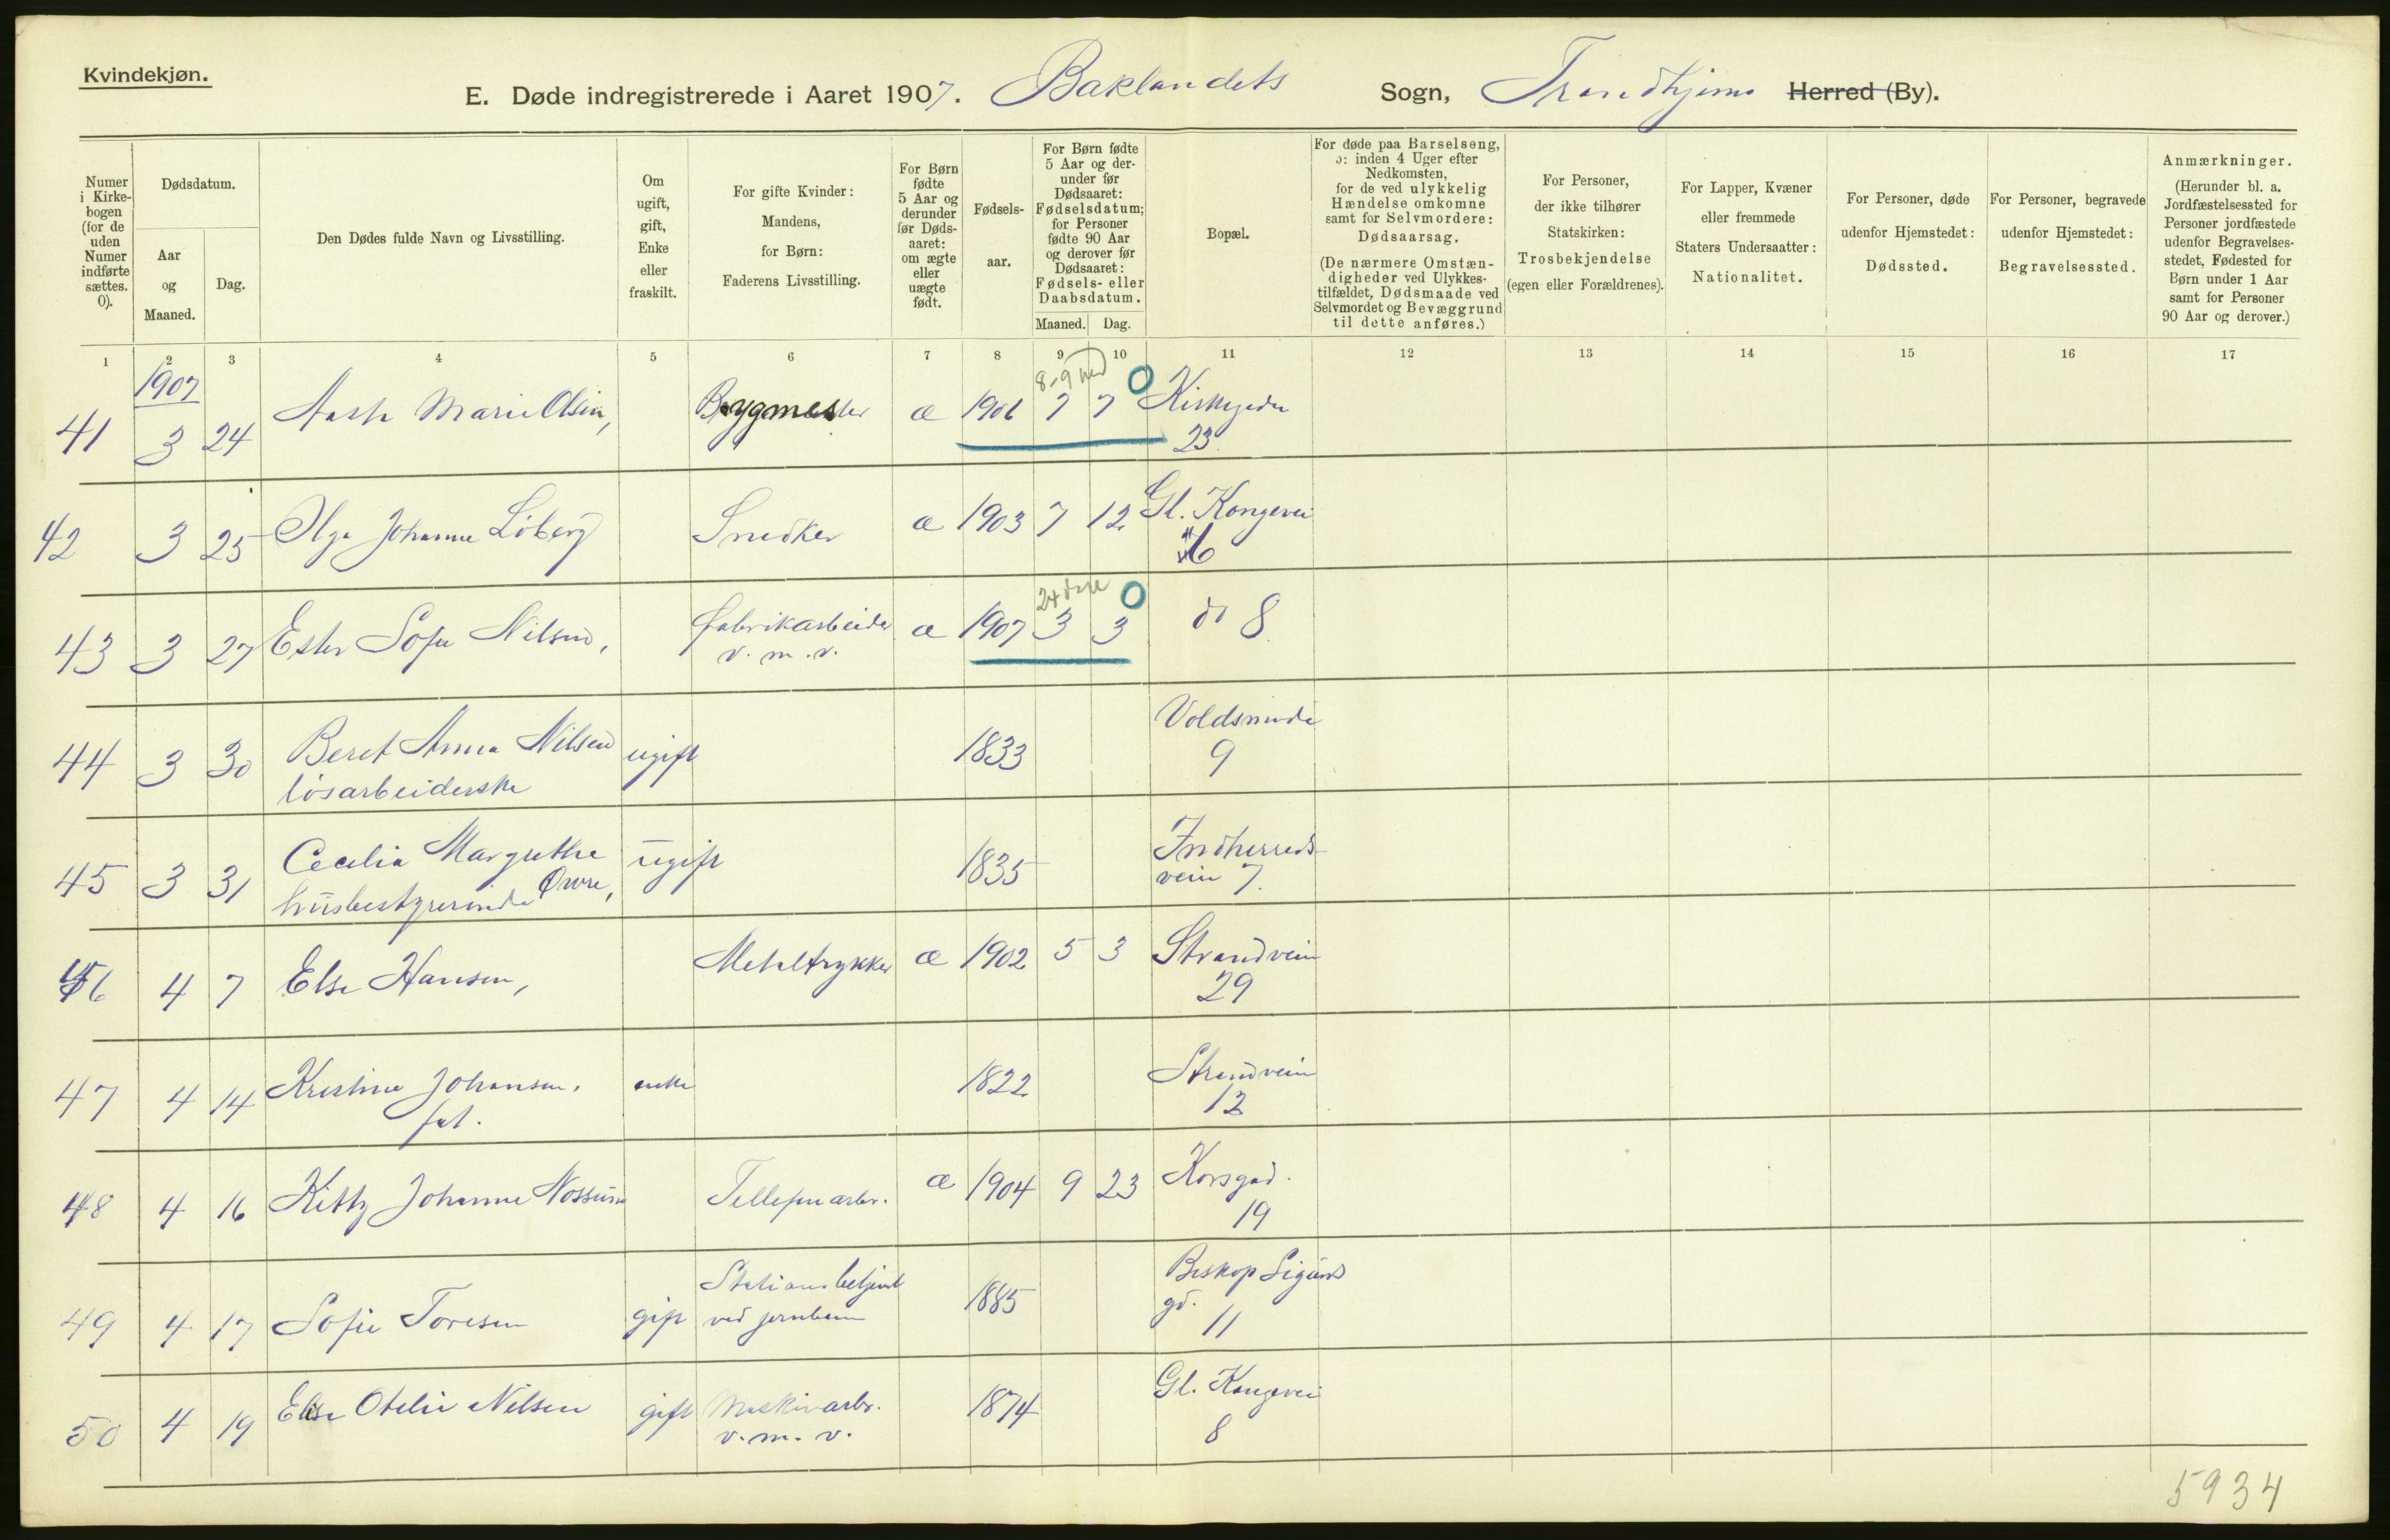 Kvindekjøn.
E. Døde indregistrerede i Aaret 1907. Baklandets Sogn, Trondhjems Herred (By).
Numer i Kirkebogen (for de uden Numer indførte sættes. 0).
Dødsdatum.
Aar og Maaned.
Dag.
Den Dødes fulde Navn og Livsstilling.
Om ugift, gift, Enke eller fraskilt.
For gifte Kvinder: Mandens, for Børn: Faderens Livsstilling.
For Børn fødte 5 Aar og derunder før Dødsaaret: om ægte eller uægte født.
Fødselsaar.
For Børn fødte 5 Aar og derunder før Dødsaaret: Fødselsdatum; for Personer fødte 90 Aar og derover før Dødsaaret: Fødsels- eller Daabsdatum.
Maaned. Dag.
Bopæl.
For døde paa Barselseng, ɔ: inden 4 Uger efter Nedkomsten, for de ved ulykkelig Hændelse omkomne samt for Selvmordere: Dødsaarsag.
(De nærmere Omstændigheder ved Ulykkestilfældet, Dødsmaade ved Selvmordet og Bevæggrund til dette anføres.)
For Personer, der ikke tilhører Statskirken: Trosbekjendelse (egen eller Forældrenes).
For Lapper, Kvæner eller fremmede Staters Undersaatter: Nationalitet.
For Personer, døde udenfor Hjemstedet: Dødssted.
For Personer, begravede udenfor Hjemstedet: Begravelsessted.
Anmærkninger.
(Herunder bl. a. Jordfæstelsessted for Personer jordfæstede udenfor Begravelsesstedet, Fødested for Børn under 1 Aar samt for Personer 90 Aar og derover.)
1 2 3 4 5 6 7 8 9 10 11 12 13 14 15 16 17
1907
8-9 0
41 3 24 Marie Olsen, Bygmester æ 1906 7 7
23
42 3 25 Olga Johanne Löberg Snedker æ 1903 7 12 Gl. Kongevei
16
24 0
43 3 27 Ester Sofie Nilsen, fabrikarbeider æ 1907 3 3 do 8
v. m. v.
44 3 30 Beret Anna Nilsen ugift 1833 Voldsminde
løsarbeiderske 9
45 3 31 Cecelia Margrethe ugift 1835 Indherreds-
husbestyrerinde Øvre, vein 7.
46 4 7 Else Hansen, Metaltrykker æ 1902 5 3 Strandvein
29
47 4 14 Kristine Johansen, enke 1822 Strandvein
fat. 12
48 4 16 Kitty Johanne Nossum Tellefonarbr. æ 1904 9 23 Korsgad.
19
49 4 17 Sofie Toresen gift Stationsbetjent 1885 Biskop Sigurds
ved jernbanen gd.
11
50 4 19 Else Otelie Nilsen gift Maskinarbr. 1874 Gl. Kongevei
v. m. v. 8
5934